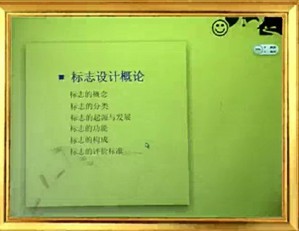 标志设计概论
标志的概念
标志的分类
标志的起源与发展
标志的功能
标志的构成
标志的评价标准……